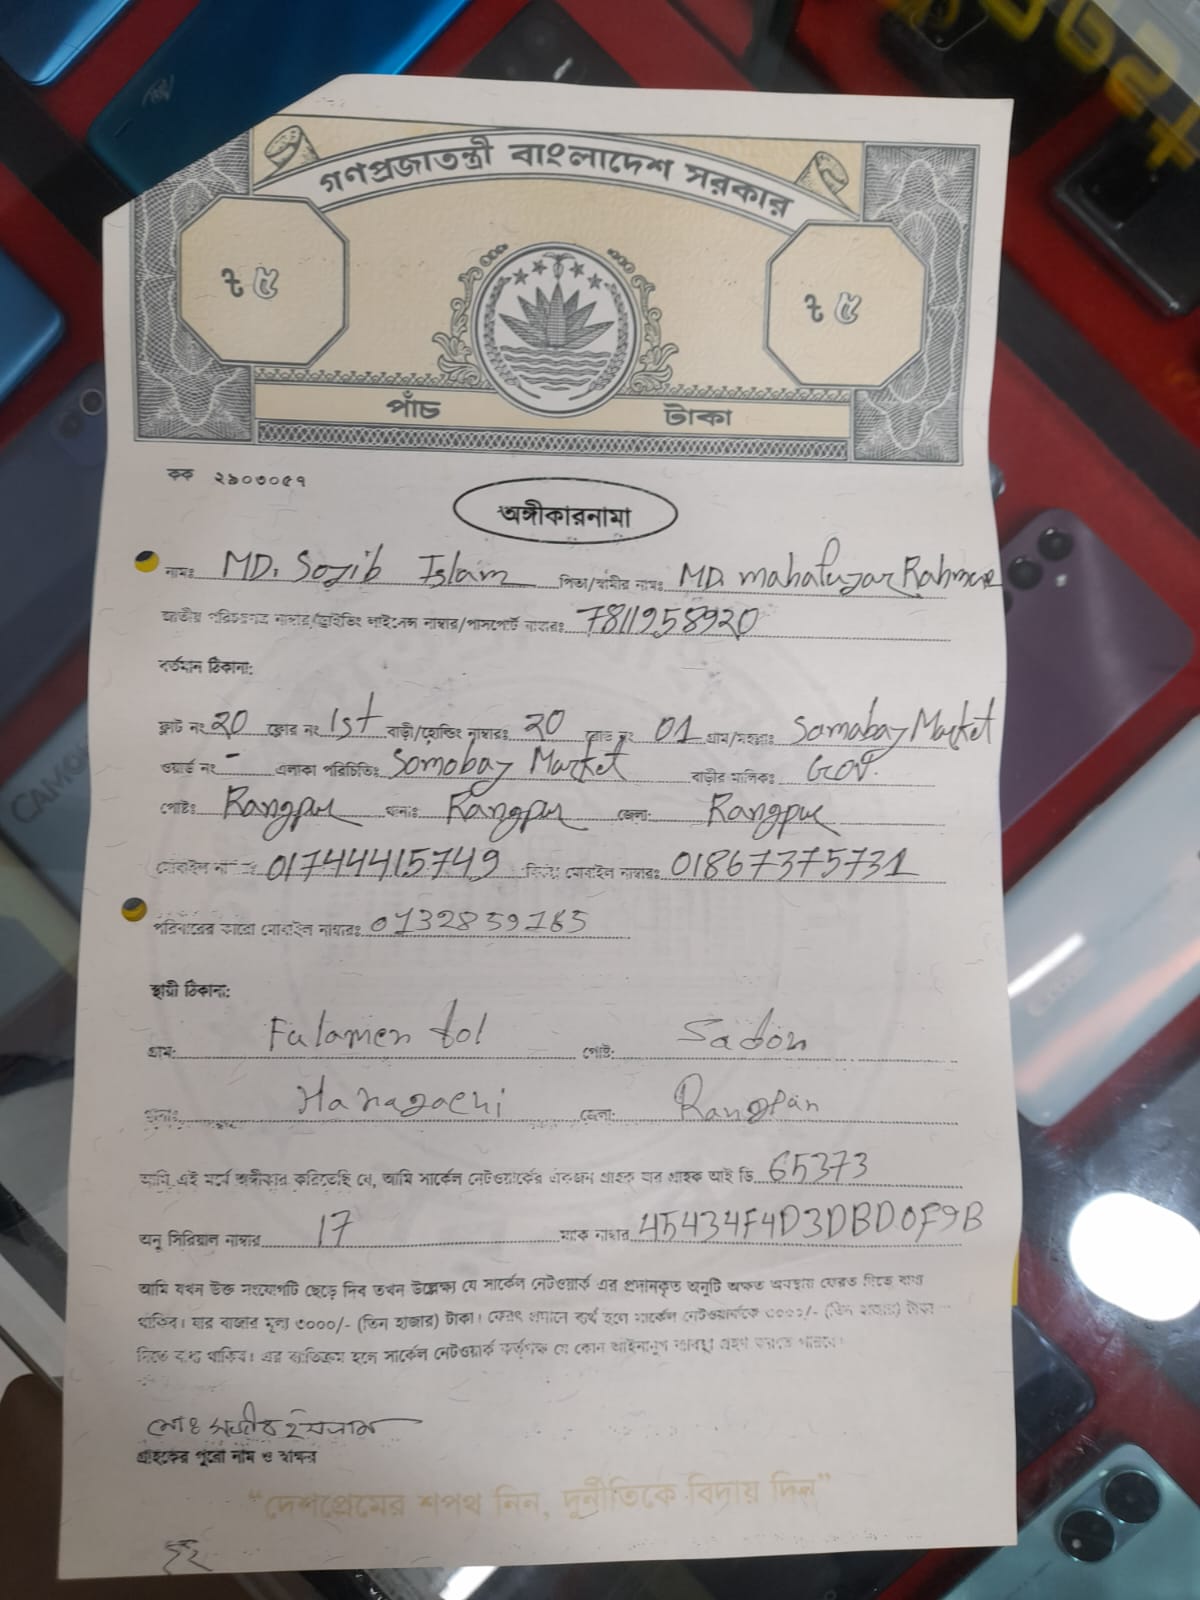 গণপ্রজাতন্ত্রী বাংলাদেশ সরকার
৳ ৫ ৳ ৫
পাঁচ টাকা
কক ২৯০৩০৫৭
অঙ্গীকারনামা
নামঃ MD. Sojib Islam পিতা/স্বামীর নামঃ MD. mahafuzar Rahman
জাতীয় পরিচয়পত্র নাম্বার/ড্রাইভিং লাইসেন্স নাম্বার/পাসপোর্ট নাম্বারঃ 7811958920
বর্তমান ঠিকানা:
ফ্লাট নং 20 ফ্লোর নং 1st বাড়ী/হোল্ডিং নাম্বারঃ 20 রোড নং 01 গ্রাম/মহল্লাঃ Somabay Market
ওয়ার্ড নং - এলাকা পরিচিতিঃ Somobay Market বাড়ীর মালিকঃ Gov.
পোষ্টঃ Rangpur থানাঃ Rangpur জেলা: Rangpur
মোবাইল নাম্বারঃ 01744415749 মোবাইল নাম্বারঃ 01867375731
পরিবারের কারো মোবাইল নাম্বারঃ 0132859165
স্থায়ী ঠিকানা:
গ্রাম: পোষ্ট: Sadon
থানাঃ Haragachi জেলা: Rangpur
আমি এই মর্মে অঙ্গীকার করিতেছি যে, আমি সার্কেল নেটওয়ার্কের একজন গ্রাহক যার গ্রাহক আই ডি 65373
অনু সিরিয়াল নাম্বার 17 ম্যাক নাম্বার 45434F4D3DBD0F9B
আমি যখন উক্ত সংযোগটি ছেড়ে দিব তখন উল্লেখ্য যে সার্কেল নেটওয়ার্ক এর প্রদানকৃত অনুটি অক্ষত অবস্থায় ফেরত দিতে বাধ্য
থাকিব। যার বাজার মূল্য ৩০০০/- (তিন হাজার) টাকা। ফেরৎ প্রদানে ব্যর্থ হলে সার্কেল নেটওয়ার্ককে ৩০০০/- (তিন হাজার) টাকা
দিতে বাধ্য থাকিব। এর ব্যতিক্রম হলে সার্কেল নেটওয়ার্ক কর্তৃপক্ষ যে কোন আইনানুগ ব্যবস্থা গ্রহণ করতে পারবে।
মোঃ সজীব ইসলাম
গ্রাহকের পুরো নাম ও স্বাক্ষর
“দেশপ্রেমের শপথ নিন, দুর্নীতিকে বিদায় দিন”